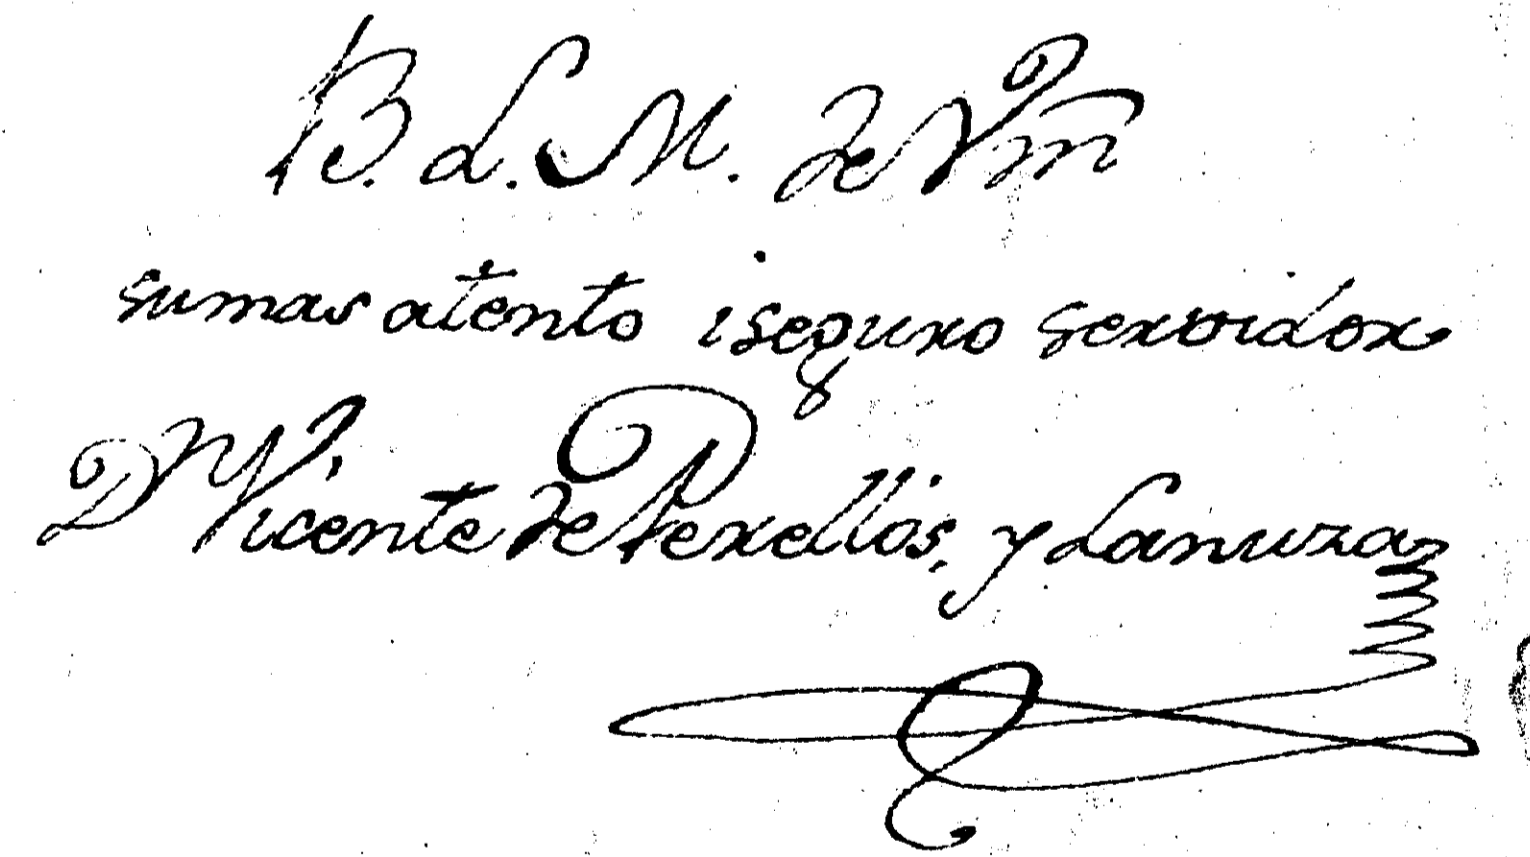 B. L. M. de Vm
su mas atento i seguro servidor
Dn Vicente de Perellós, y Lanuza